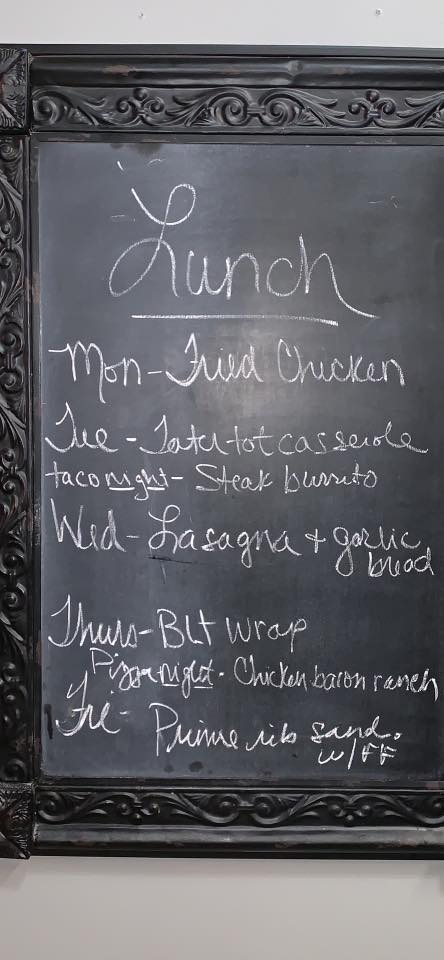 Lunch
Mon - Fried Chicken
Tue - Tater tot casserole
taco night - Steak burrito
Wed - Lasagna + garlic
bread
Thurs - BLT wrap
Pizza night - Chicken bacon ranch
Fri -
Prime rib sand.
w/FF